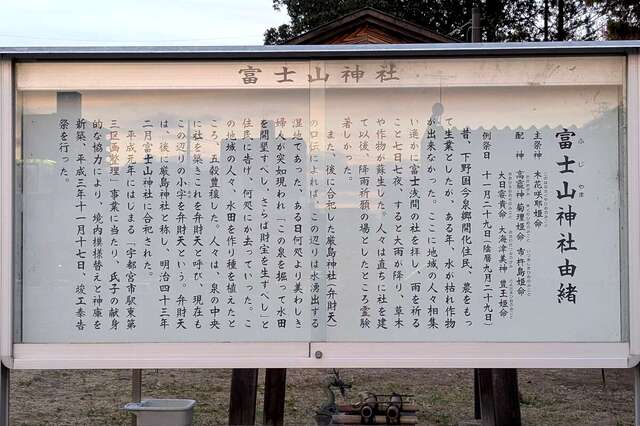 富士山神社
富士山神社由緒
ふじやま
主祭神 木花咲耶姫命
配神 高龗神 菊理姫命 市杵島姫命
大日孁貴命 大海津美神 豊玉姫命
例祭日 十一月二十九日(陰暦九月二十九日)
昔、下野国今泉郷開化住民、農をもっ
て生業としたが、ある年、水が枯れ作物
が出来なかった。ここに地域の人々相集
い遥かに富士浅間の社を拝し、雨を祈る
こと七日七夜、すると大雨が降り、草木
や作物が蘇生した。人々は直ちに社を建
て以後、降雨祈願の場としたところ霊験
著しかった。
また、後に合祀した厳島神社(弁財天)
の口伝によれば、この辺りは水湧出する
湿地であった。ある日何処より美わしき
婦人が突如現われ「この泉を掘って水田
を開墾すべし、さらば財宝を生ずべし」と
住民に告げ、何処にか去っていった。こ
の地域の人々、水田を作り種を植えたと
ころ、五穀豊穣した。人々は、泉の中央
に社を築きこれを弁財天と呼び、現在も
この辺りの小字を弁財天という。弁財天
は、後に厳島神社と称し、明治四十三年
二月富士山神社に合祀された。
平成元年にはじまる「宇都宮市駅東第
三区画整理」事業に当たり、氏子の献身
的な協力により、境内模様替えと神庫を
新築、平成三年十一月十七日、竣工奉告
祭を行った。